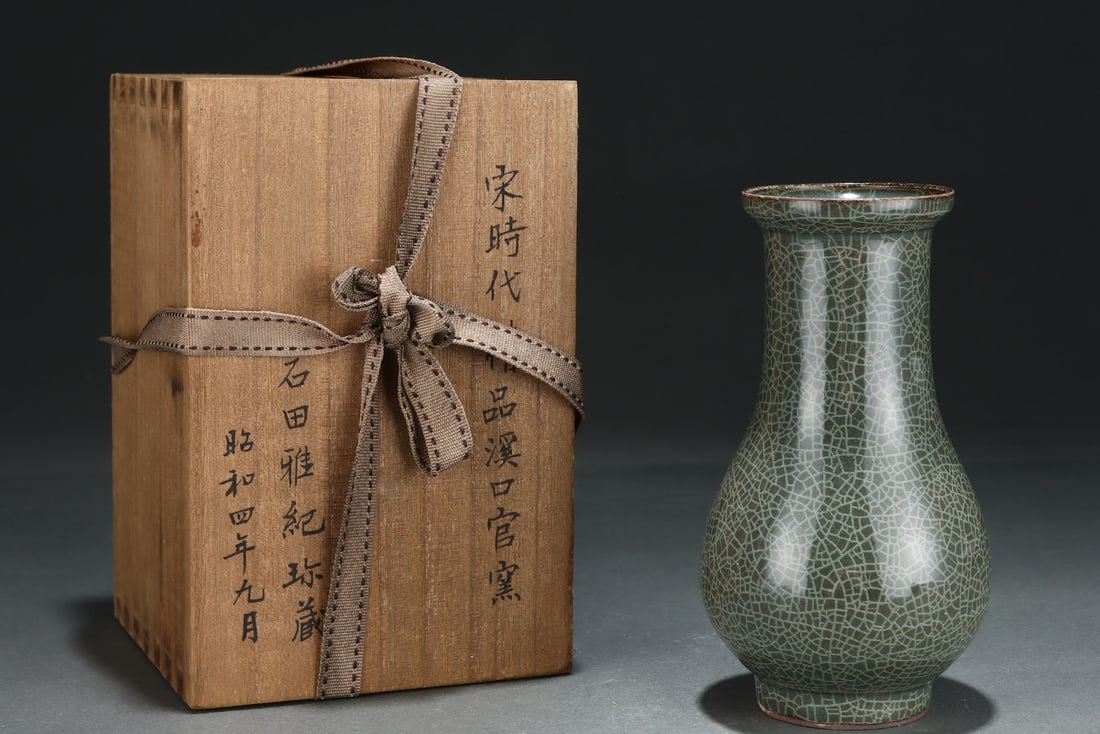 宋時代 品溪口官窯
石田雅紀珍藏
昭和四年九月